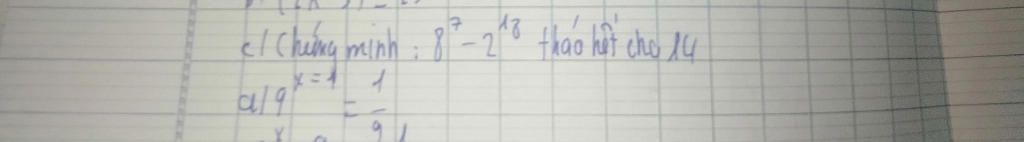 c/ Chứng minh : 8^7 - 2^18 tháo hết cho 14
a/ 9^x=1 = 1/9